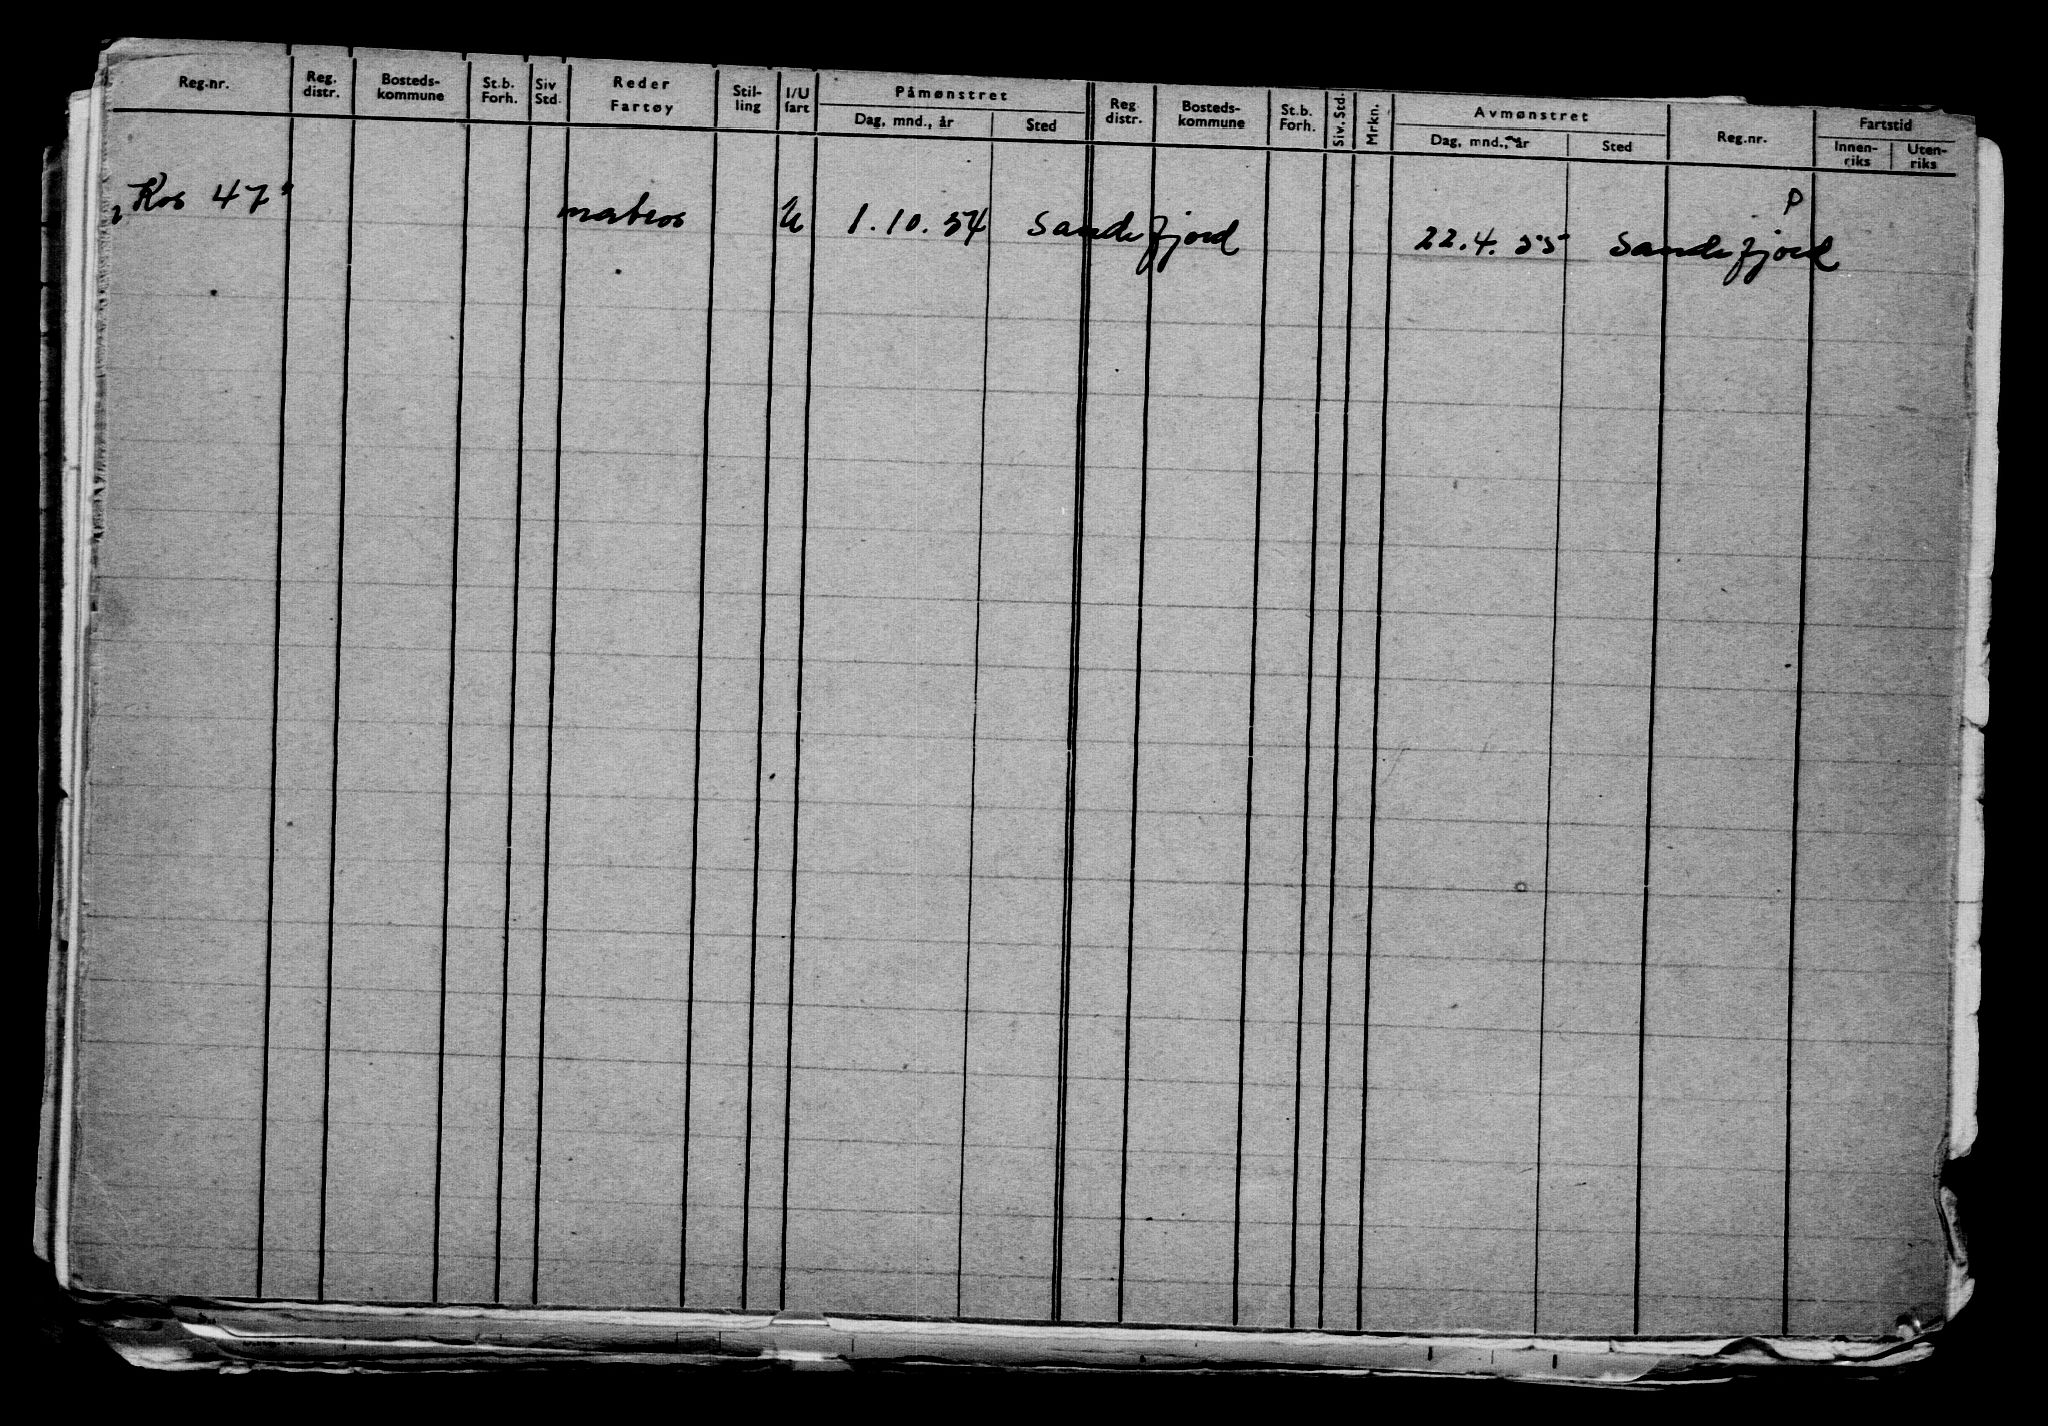 Reg.nr. Reg. distr. Bosteds-kommune St.b. Forh. Siv Std. Reder Fartøy Stil-ling I/U fart Påmønstret Dag, mnd., år Sted Reg distr. Bosteds-kommune St.b. Forh. Siv. Std. Mrkn. Avmønstret Dag, mnd., år Sted Reg.nr. Fartstid Innen-riks Uten-riks
P
„Kos 47" matros U 1.10.54 Sandefjord 22.4.55 Sandefjord